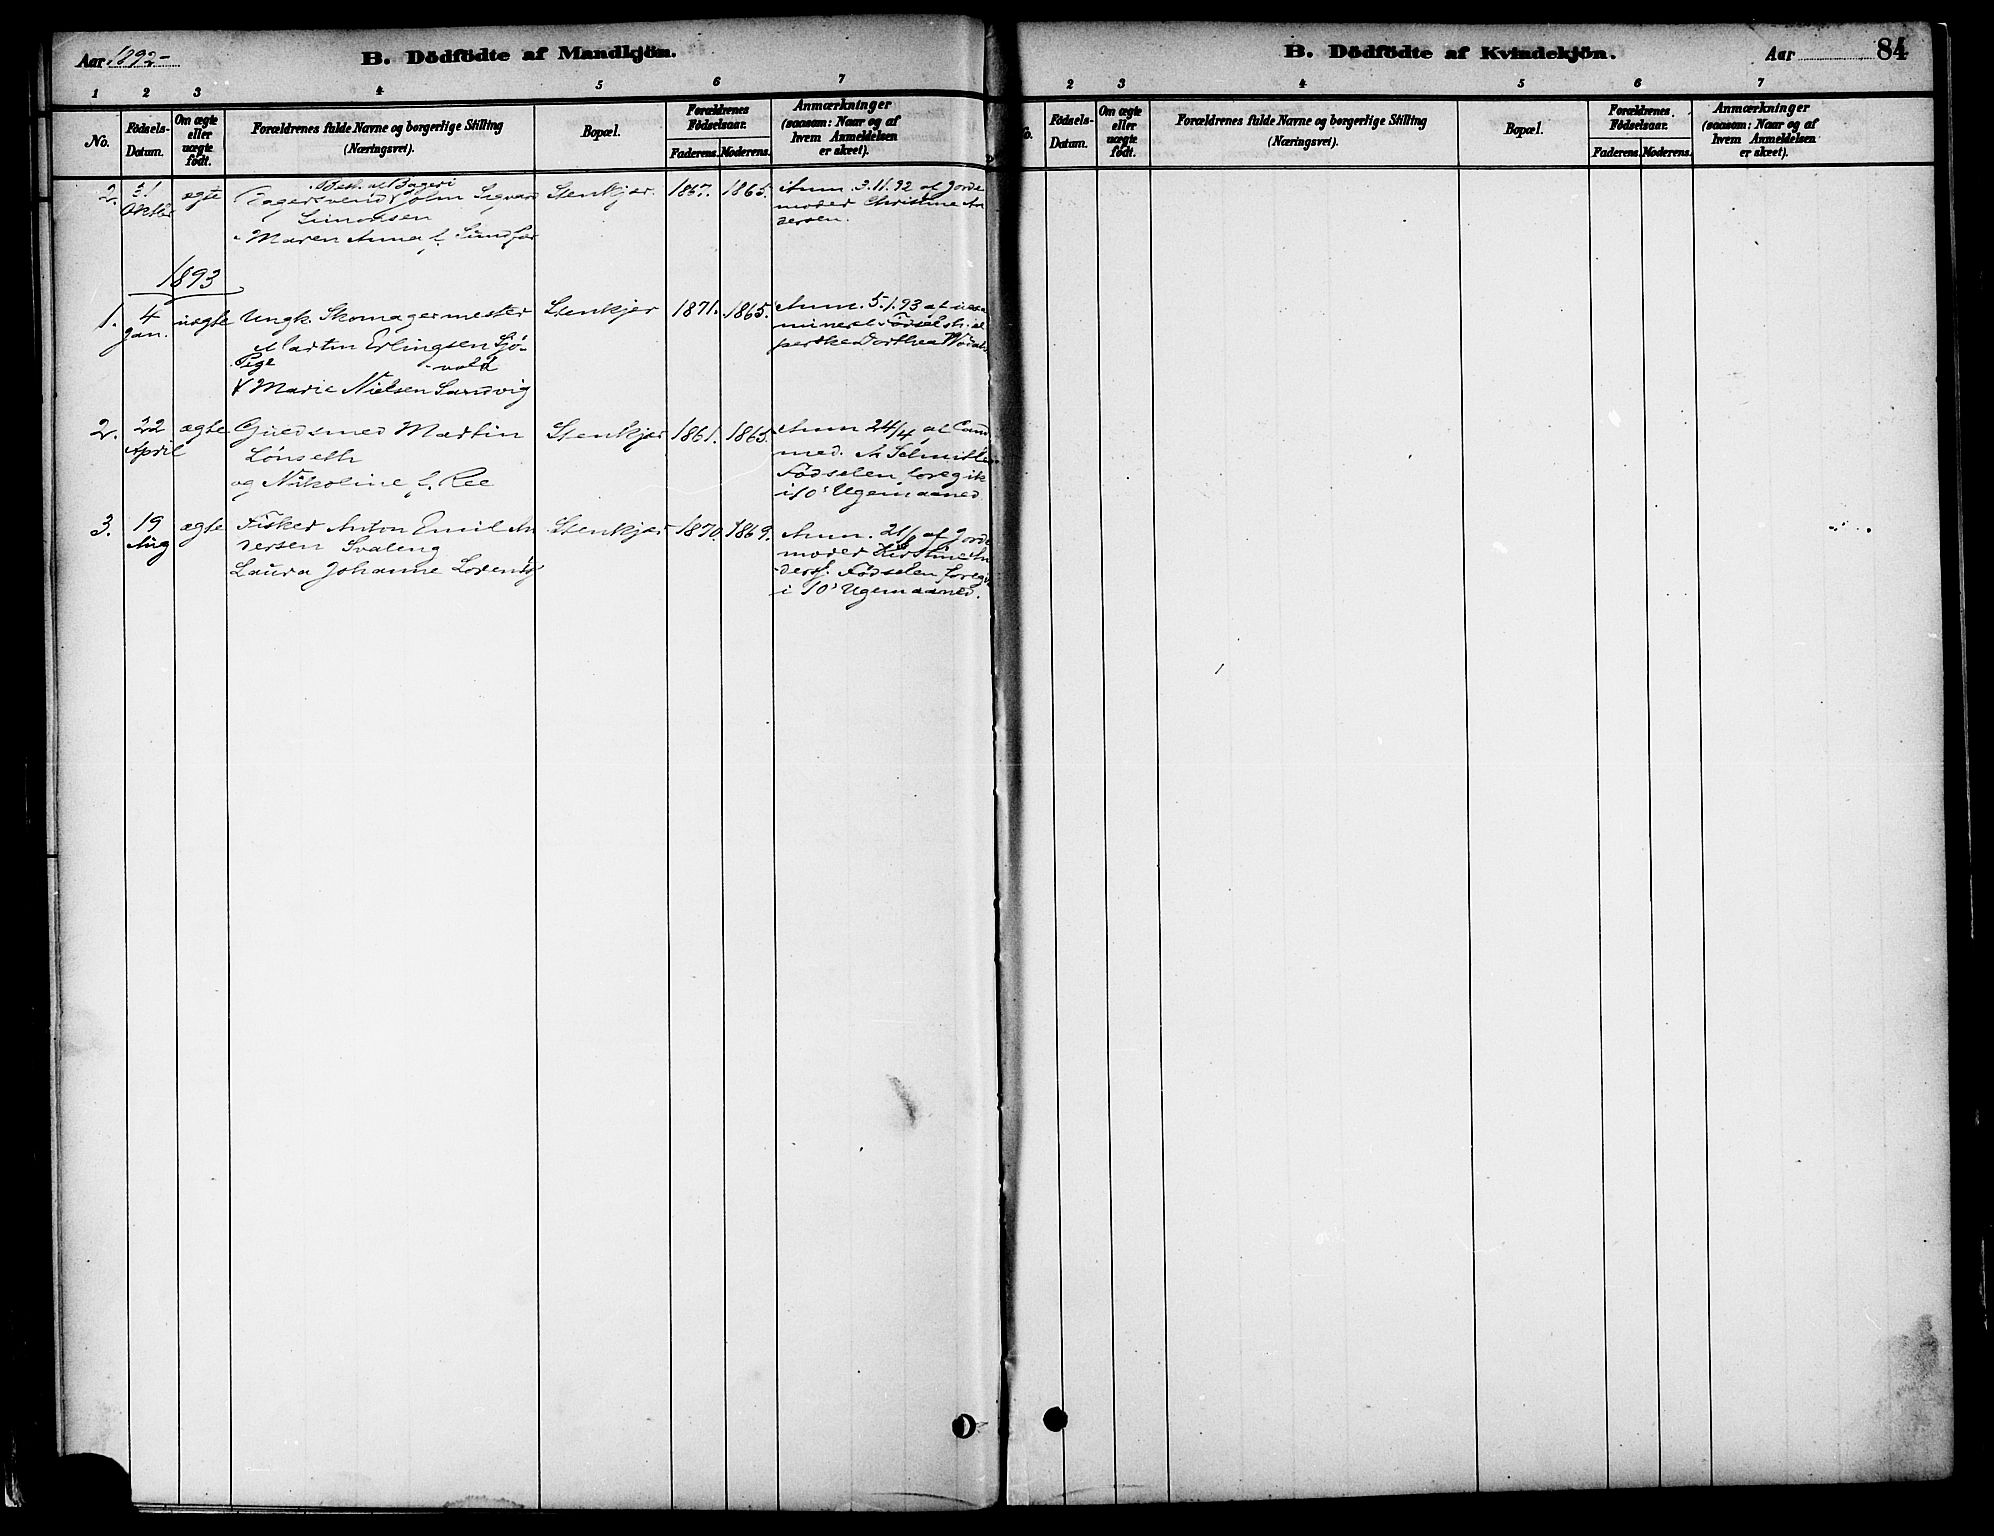 Aar 1892-
B. Dödfödte af Mandkjön.
1 2 3 4 5 6 7
No.
Födsels-
Datum.
Om ægte
eller
uægte
födt.
Forældrenes fulde Navne og borgerlige Stilling
(Næringsvei).
Bopæl.
Forældrenes
Födselsaar.
Faderens. Moderens.
Anmærkninger
(saasom: Naar og af
hvem Anmeldelsen
er skeet).
2. 31 ægte Best. af Bageri
Oktbr
Bagersvend John Sigvard
Simonsen
Maren Anna f. Sundfær
Stenkjær. 1867. 1865.
Anm. 3.11.92 af Jorde
moder Christine An
dersen.
1893
1. 4 uægte Ungk. Skomagermester
Jan.
Martin Erlingsen Sjö-
Pige -vold
& Marie Nielsen Sandvig
Stenkjer 1871. 1865.
Anm. 5.1.93 af
Dorthea
2. 22 ægte Guldsmed Martin
April
Lönseth
og Nikoline f. Ree
Stenkjær 1861. 1865.
Anm 24/4 af Cand
med. A Schmidt
Födselen foregik
i 10' Ugemaaned
3. 19 ægte Fisker Anton Emil An
Aug
dersen Svaleng
Laura Johanne Lorentz
Stenkjær 1870. 1869.
Anm. 21/8 af Jorde
moder Kirstine An
ders. Födselen foregik
i 10' Ugemaaned.
B. Dödfödte af Kvindekjön.
Aar 84
2 3 4 5 6 7
No.
Födsels-
Datum.
Om ægte
eller
uægte
födt.
Forældrenes fulde Navne og borgerlige Stilling
(Næringsvei).
Bopæl.
Forældrenes
Födselsaar.
Faderens. Moderens.
Anmærkninger
(saasom: Naar og af
hvem Anmeldelsen
er skeet).